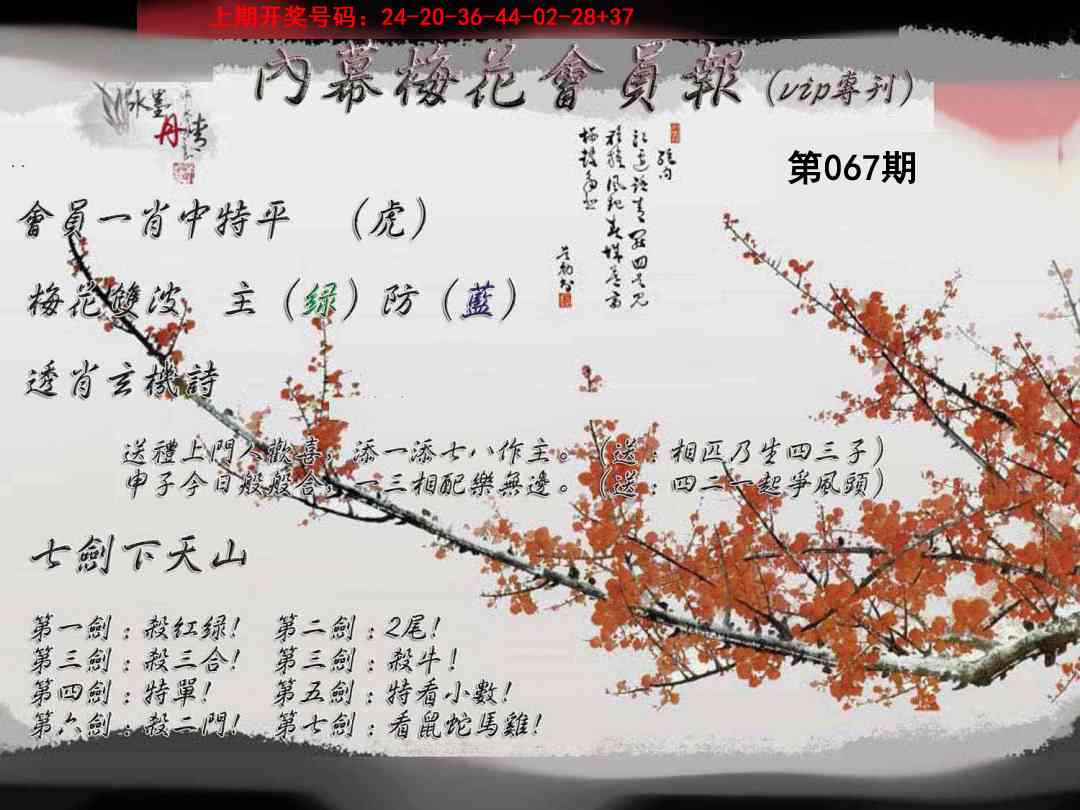 上期开奖号码：24-20-36-44-02-28+37
內幕梅花會員報（vip專刊）
水墨
丹青
第067期
會員一肖中特平　（虎）
梅花雙波　主（绿）防（藍）
透肖玄機詩
送禮上門人歡喜，添一添七八作主。（送：相匹乃生四三子）
申子今日般般合，一三相配樂無邊。（送：四二一起爭風頭）
七劍下天山
第一劍：殺紅绿！　第二劍：2尾！
第三劍：殺三合！　第三劍：殺牛！
第四劍：特單！　第五劍：特看小數！
第六劍：殺二門！　第七劍：看鼠蛇馬雞！